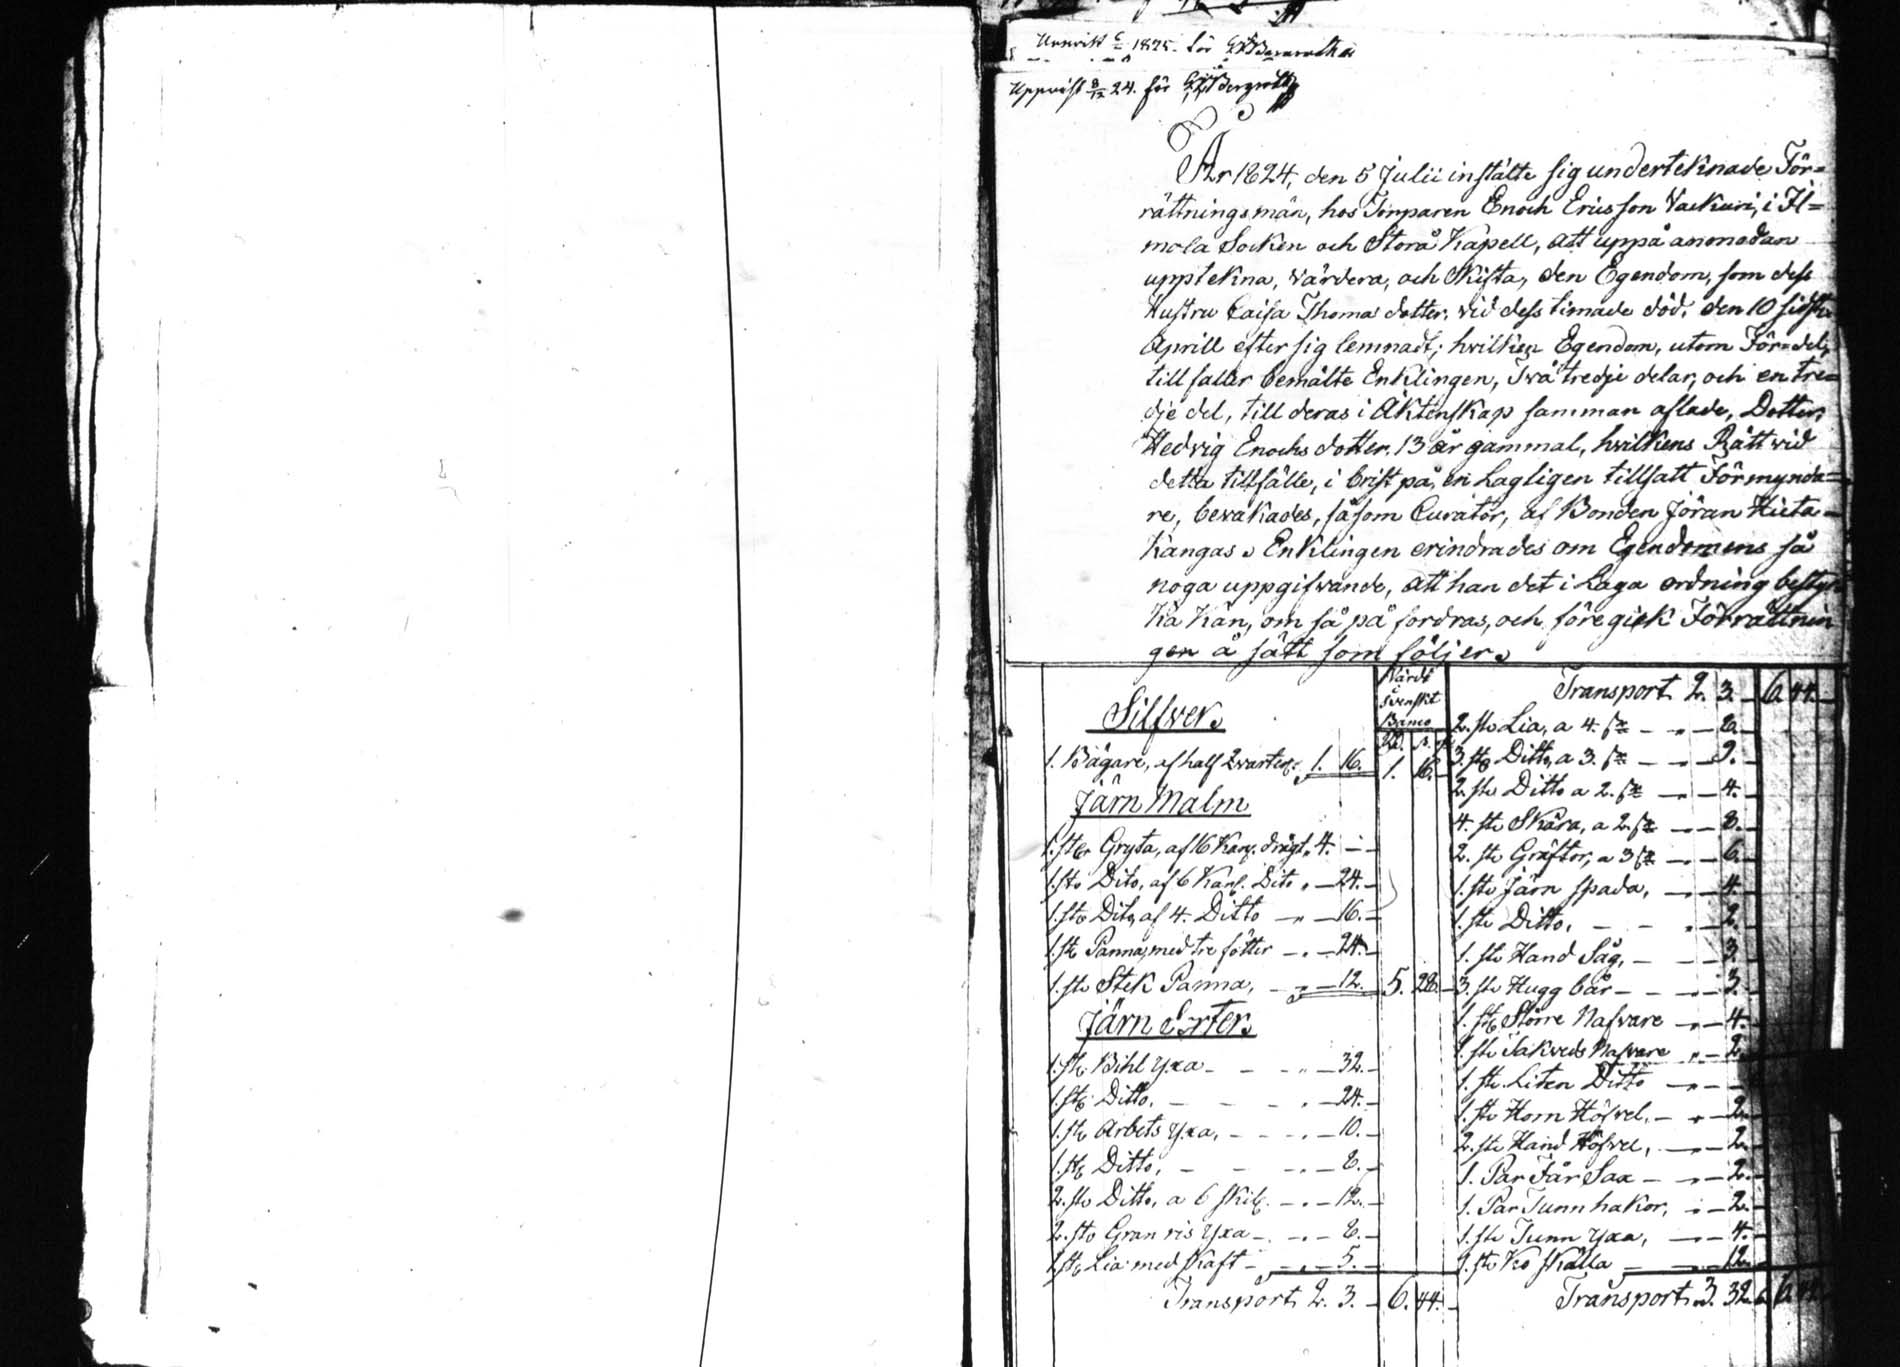 1825. för
Uppvist 8/12 24. för
År 1824, den 5 Julii instälte sig underteknade För=
rättningsmän, hos Torparen Enoch Ericsson Vackuri, i Il=
mola Socken och Storå Kapell, att uppå anmodan
uppтekna, värdera, och skifta, den Egendom, som dess
Hustru Caisa Thomasdotter, vid dess timade död, den 10 sidstl.
Aprill efter sig lemnadt; hvilken Egendom, utom För=del,
tillfaller bemälte Enklingen, Två tredje delar, och en tre=
dje del, till deras i Äktenskap samman aflade, Dotter,
Hedvig Enochsdotter. 13 år gammal, hvilkens Rätt vid
detta tillfälle, i brist på, en Lagligen tillsatt Förmynda=
re, bevakades, såsom Curator, af Bonden Jöran Hieta=
kangas. Enklingen erindrades om Egendomens så
noga uppgifvande, att han det i Laga ordning bestyr
ka kan, om så på fordras, och föregick Förrättnin
gen å sätt som följer.
Värde
svenskt
Banco
Silfver.
1. Bägare, af half qvarter. 1. 16. 1. 16.
Järn Malm
1. st. Gryta, af 16 Kan. drägt. 4. — –
1. st. Dito, af 6 Kan. Dito „ — 24. –
1. st. Dito, af 4. Ditto – „ — 16. –
1. st. Panna, med tre fötter – „ — 24. –
1. st. Stek Panna, – „ — 12. 5. 28. –
Järn Sorter.
1. st. Bihl yxa – – „ — 32. –
1. st. Ditto. – – – „ — 24. –
1. st. Arbets yxa, – – „ — 10. –
1. st. Ditto, – – „ — 8. –
2. st. Ditto, a 6 skil. – „ — 12. –
2. st. Gran ris yxa – „ — 8. –
1. st. Lia med skaft – „ — 5. –
Transport 2. 3. – 6. 44. –
Transport 2. 3. – 6. 44. –
2. st. Lia, a 4. sk – „ — 8. –
3. st. Ditto, a 3. sk – „ — 9. –
2. st. Ditto a 2. sk – „ — 4. –
4. st. Skära, a 2. sk – „ — 8. –
2. st. Gräftor, a 3 sk – „ — 6. –
1. st. Järn spada, – „ — 4. –
1. st. Ditto. – – „ — 2. –
1. st. Hand Såg, – – — 3. –
3. st. Hugg bår – – „ — 3. –
1. st. Större Nafvare – „ — 4. –
1. st. Takveds Nafvare „ — 2. –
1. st. Liten Ditto – „ —
1. st. Horn Höfvel, – „ — 2. –
2. st. Hand Höfvel, – „ — 2. –
1. Par Får Sax – „ — 2. –
1. Par Tunn hakor, – „ — 2. –
1. st. Tunn yxa, – „ — 4. –
1. st. Ko skälla – „ — 12. –
Transport. 3. 32. – 6. 44. –